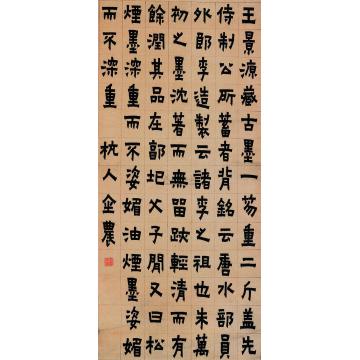 王景源藏古墨一笏重二斤盖先
侍制公所蓄者背銘云唐水部員
外郎李造製云諸李之祖也朱萬
初之墨沈著而無留趺輕清而有
餘潤其品在郭圯父子閒又曰松
煙墨深重而不姿媚油煙墨姿媚
而不深重 杭人金農